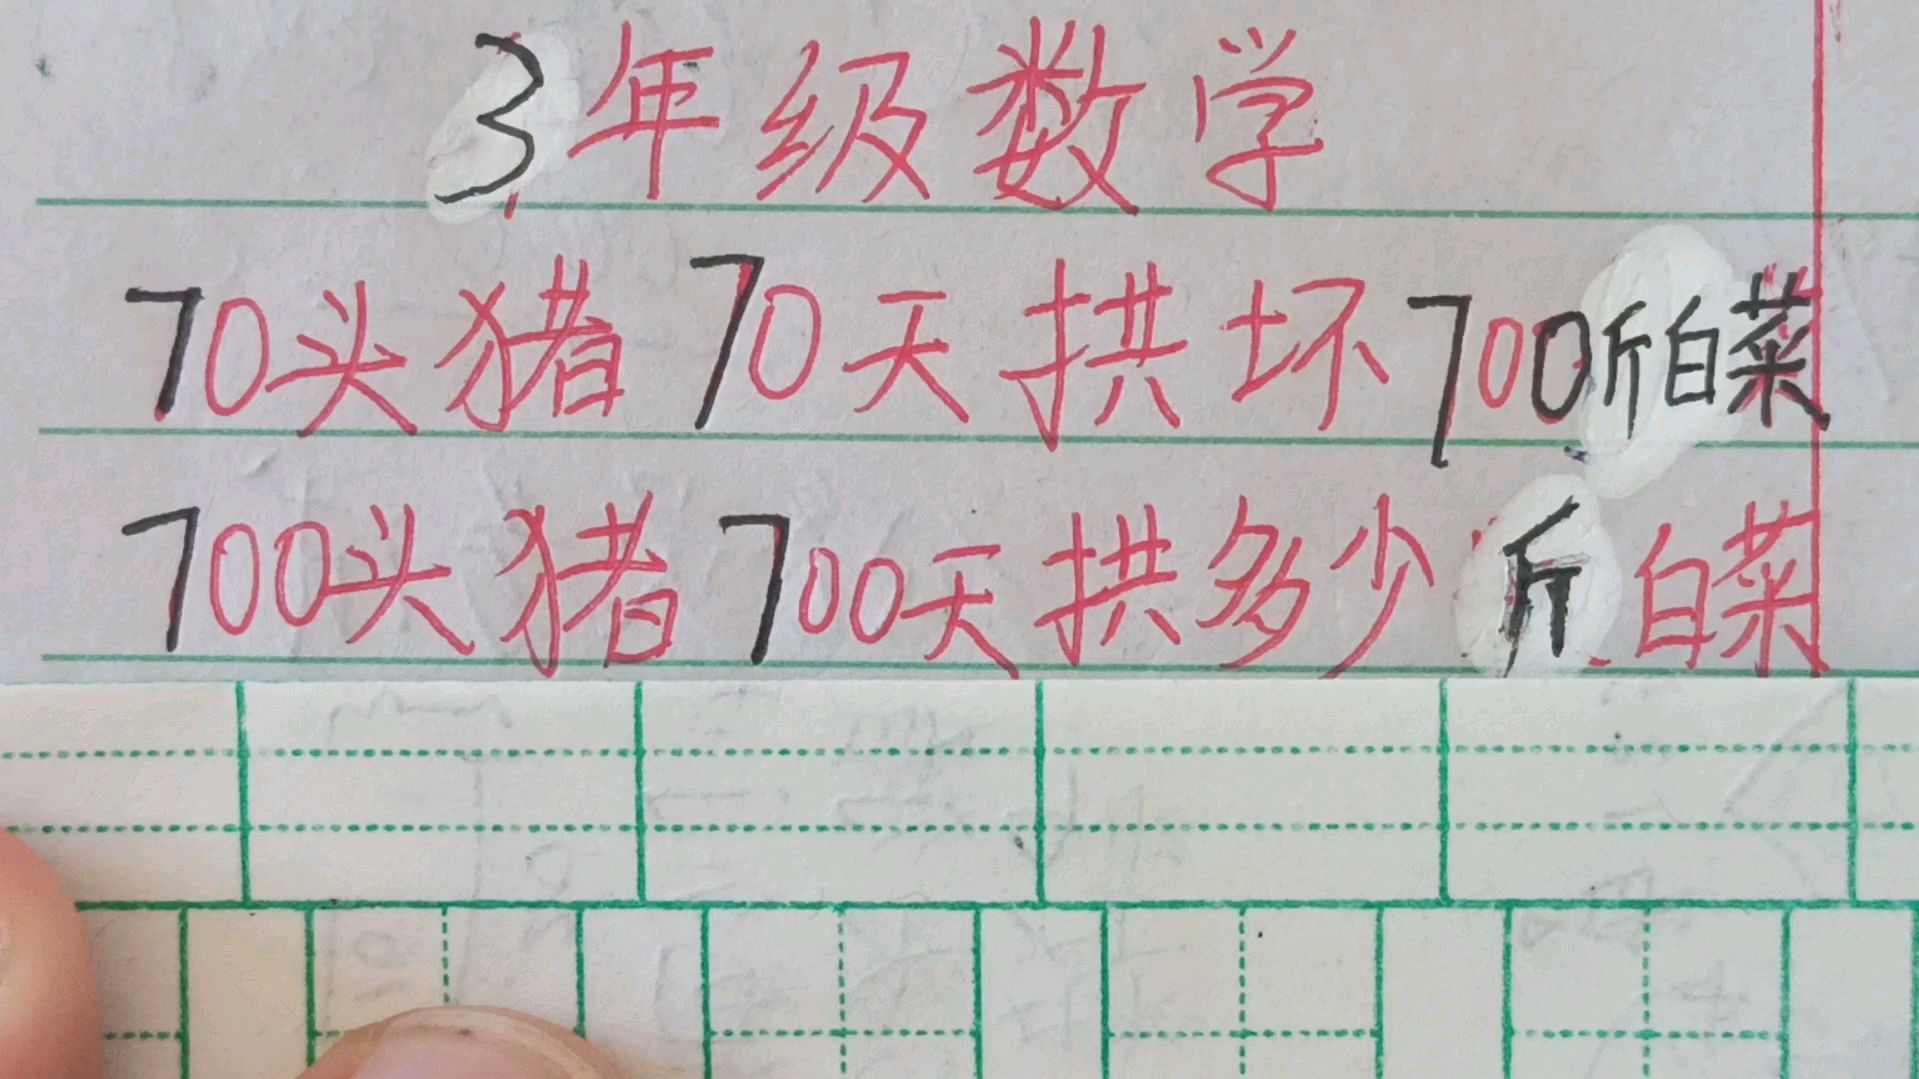 3年级数学
70头猪70天拱坏700斤白菜
700头猪700天拱多少斤白菜